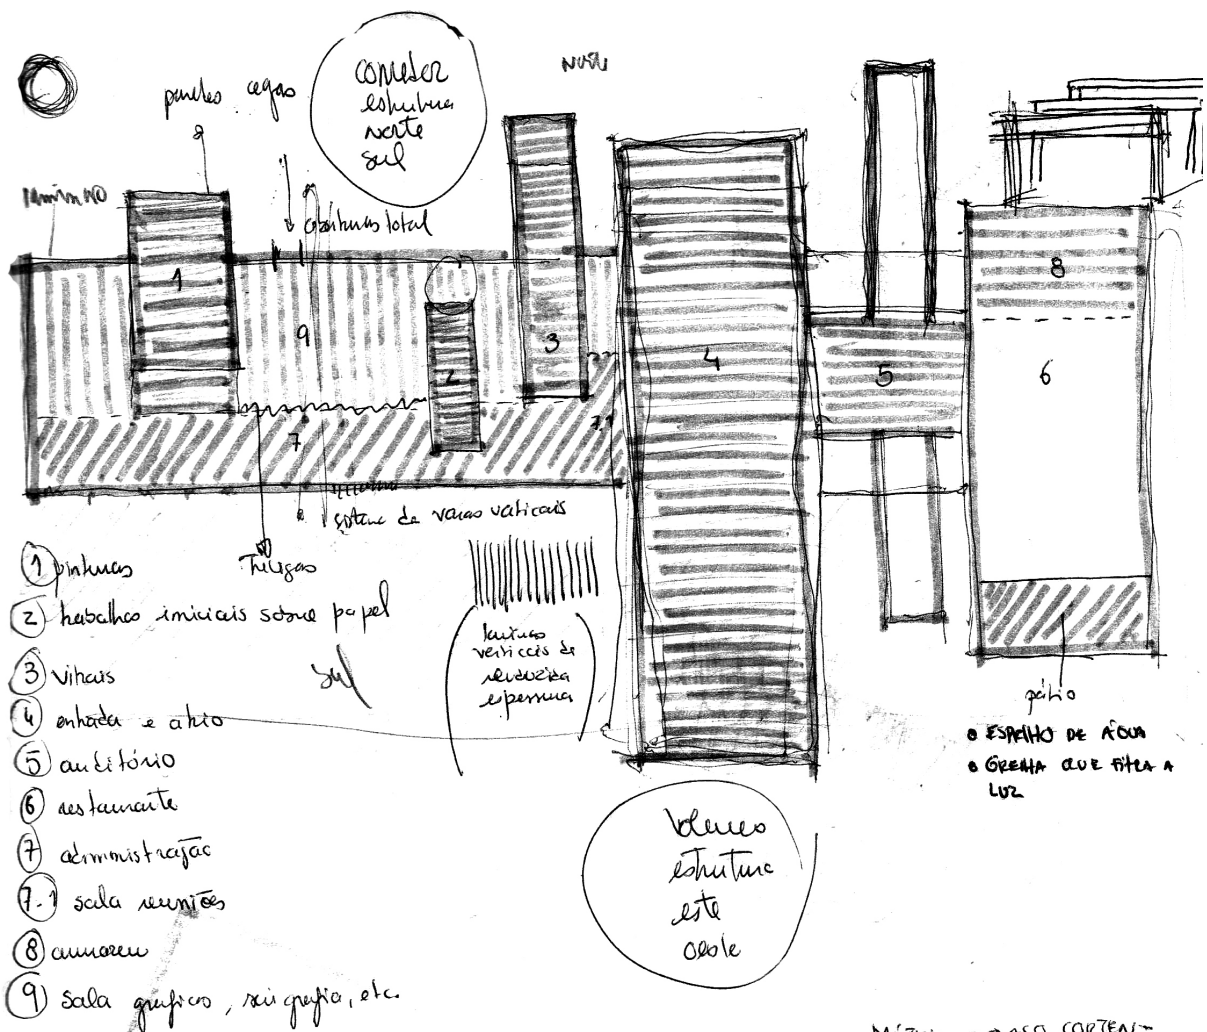 paredes cegas
conector
estrutura
norte
sul
Norte
caminho
aberturas total
1
9
2
3
4
5
8
6
7
7.1
sistema de varas verticais
Treliças
1 pinturas
2 trabalhos iniciais sobre papel
3 vitrais
sul
4 entrada e átrio
5 auditório
6 restaurante
7 administração
7.1 sala reuniões
8 armazem
9 sala graficos, serigrafia, etc.
verticais de
reduzida
espessura
estrutura
este
oeste
pátio
ESPELHO DE ÁGUA
GRELHA QUE FILTRA A
LUZ